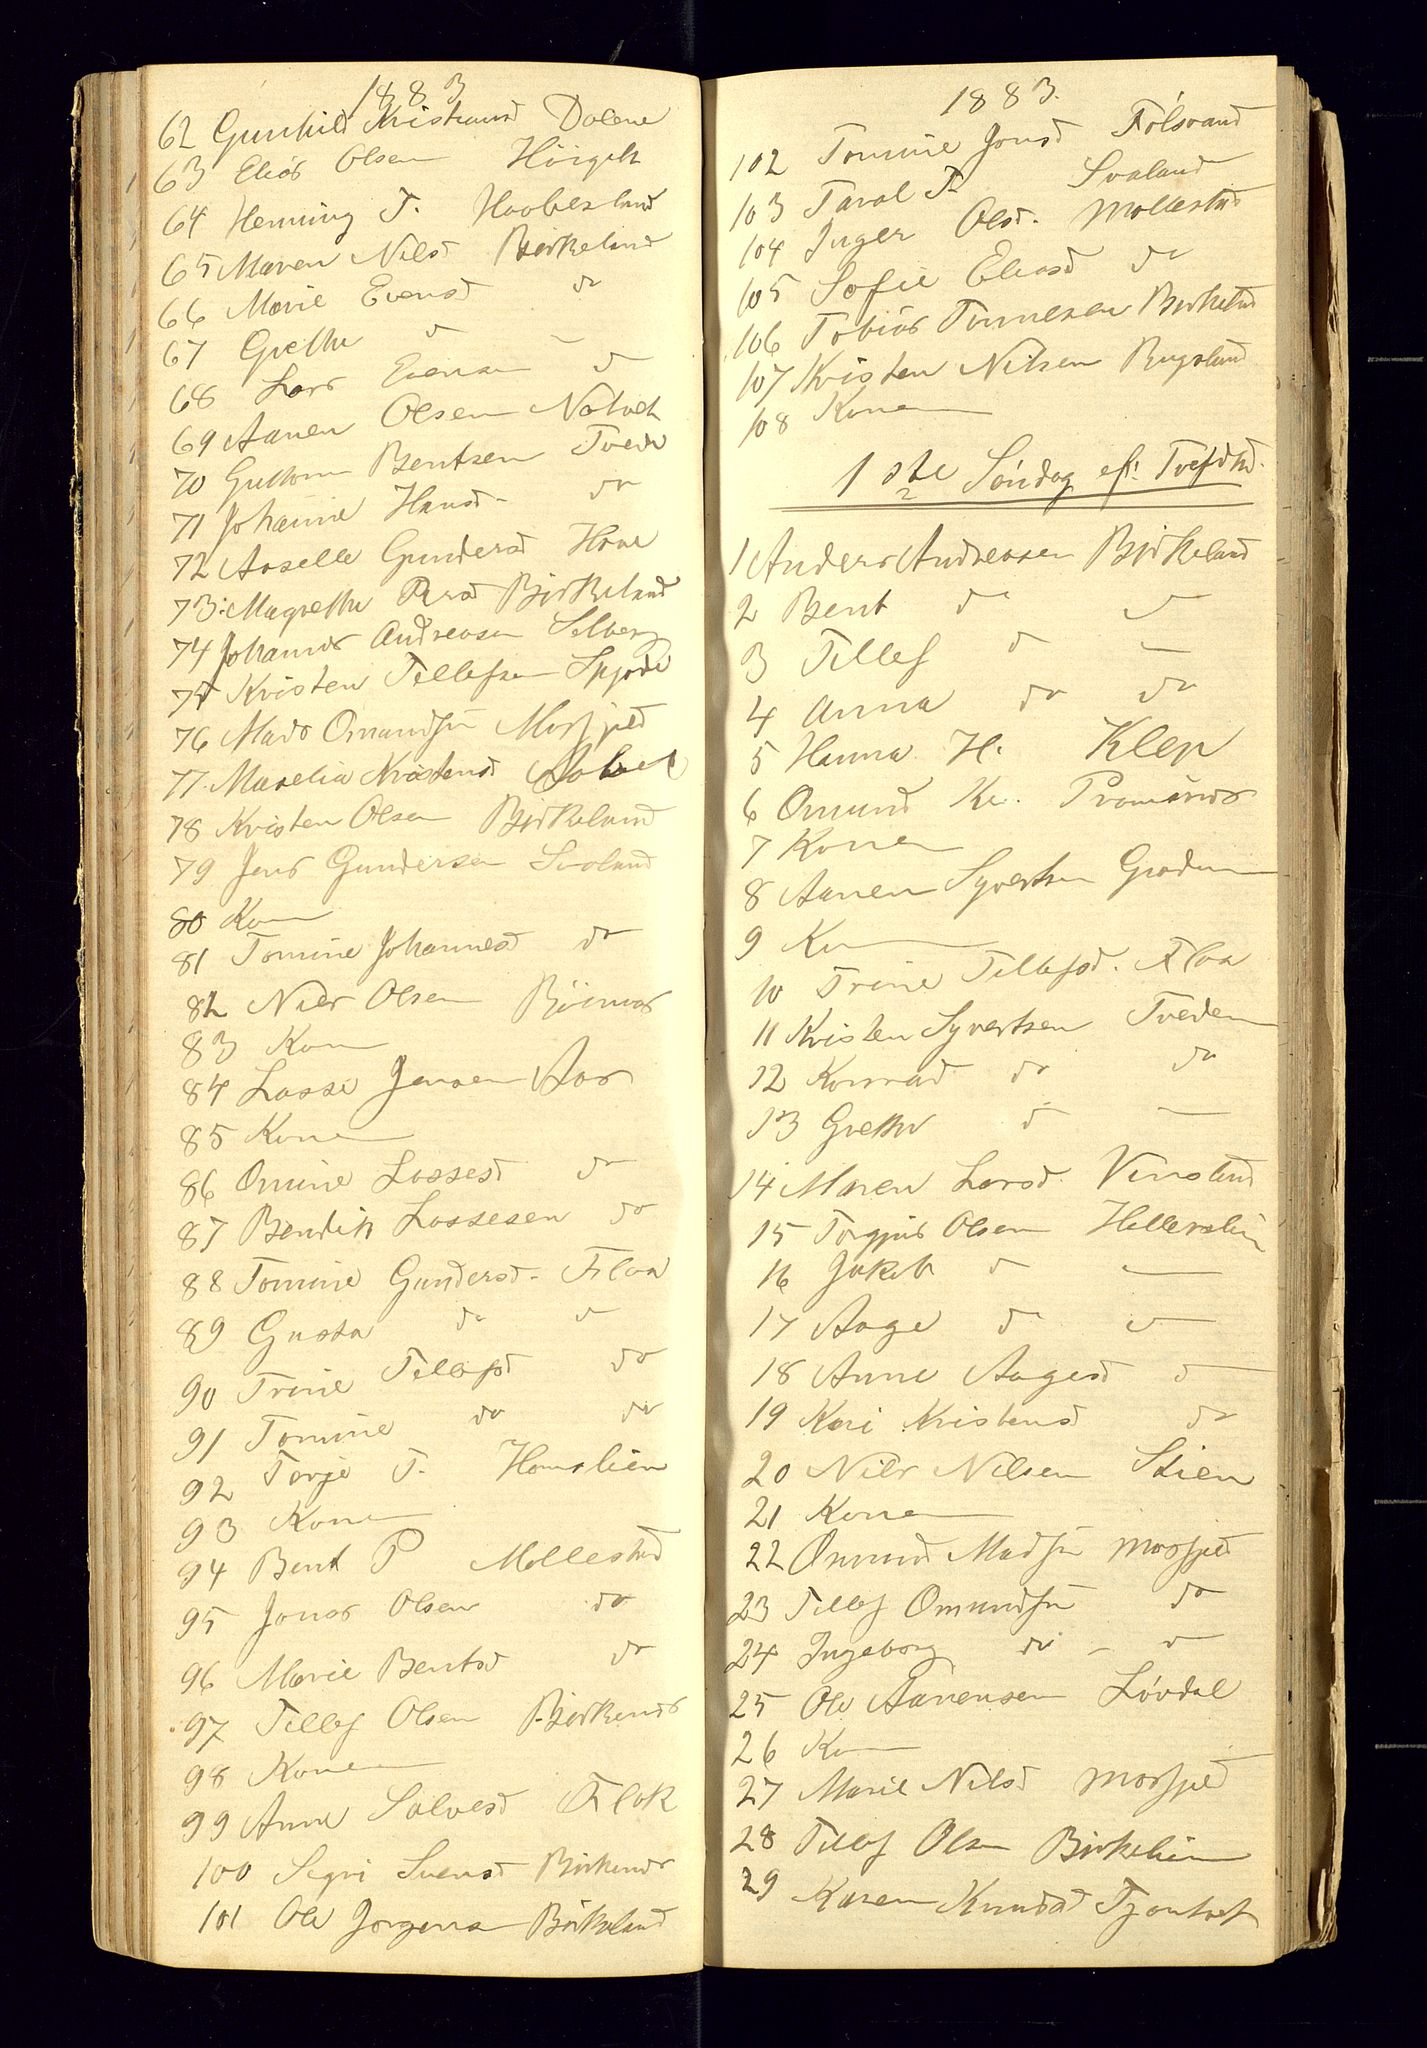 1883
62 Gunhild Kristiansd Dalene
63 Elias Olsen Höigilt
64 Henning T. Haabesland
65 Maren Nilsd Birkeland
66 Marie Evensd do
67 Grethe do —
68 Lars Evensen do
69 Aanen Olsen Natvet
70 Guttorm Bentsen Tvede
71 Johanne Hansd do
72 Aaselle Gundersd Hane
73 Magrethe Persd Birkeland
74 Johannes Andreasen Selberg
75 Kristen Tellefsen Spjode
76 Mads Omundsen Mosfjeld
77 Maselia Kristensd
78 Kristen Olsen Birkeland
79 Jens Gundersen Svaland
80 Kon
81 Tomine Johannesd do
82 Nils Olsen
83 Kon
84 Lasse Jensen Aas
85 Konen
86 Omine Lassesd do
87 Bendik Lassesen do
88 Tomine Gundersd. Flaa
89 Gusta do do
90 Trine Tellefsd do
91 Tomine do do
92 Torje T. Homslien
93 Konen
94 Bent P Mollestad
95 Jonas Olsen do
96 Marie Bentsd do
97 Tellef Olsen Birkenes
98 Konen
99 Anne Salvesd Flak
100 Segri Svensd Birkenes
101 Ole Jorgensen Birkeland
1883.
102 Tomine Jonsd Fölsvand
103 Taral T. Svaland
104 Inger Olsd. Mollestad
105 Sofie Eliasd do
106 Tobias Tomesen Birkeland
107 Kristen Nilsen Rugsland
108 Konen
1ste Söndag ef:
1 Anders Andreasen Birkeland
2 Bent do do
3 Tellef do —
4 Anna do do
5 Hanna H. Klep
6 Omund Kr.
7 Konen
8 Aanen Syvertsen
9 Kon
10 Trine Tellefsd. Flaa
11 Kristen Syvertsen Tveden
12 Konrad do do
13 Grethe do —
14 Maren Larsd. Vensland
15 Torgjus Olsen Hellerslien
16 Jakob do —
17 Aage do do
18 Anne Aagesd do
19 Kari Kristensd do
20 Nils Nilsen Stien
21 Konen
22 Omund Madsen Mosfjeld
23 Tellef Omundsen do
24 Ingeborg do - do
25 Ole Aanensen Lövdal
26 Kon
27 Marie Nilsd Mosfjeld
28 Tellef Olsen Birkelien
29 Karen Knudsd Tjontvet